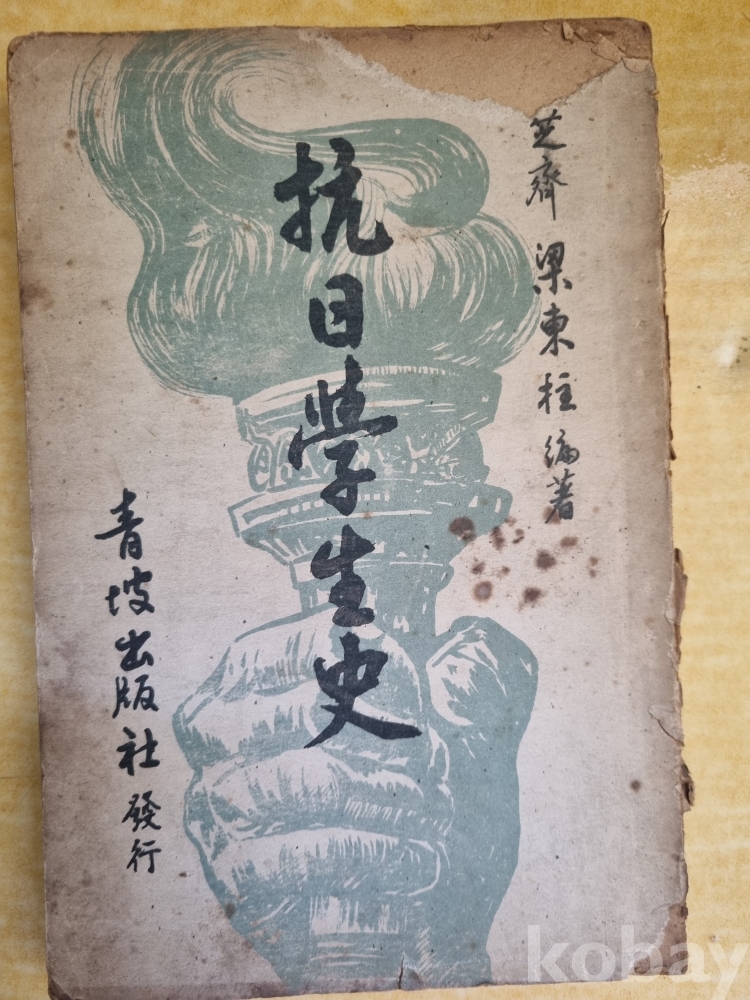 芝齋 梁東柱 編著
抗日學生史
青坡出版社 發行
kobay